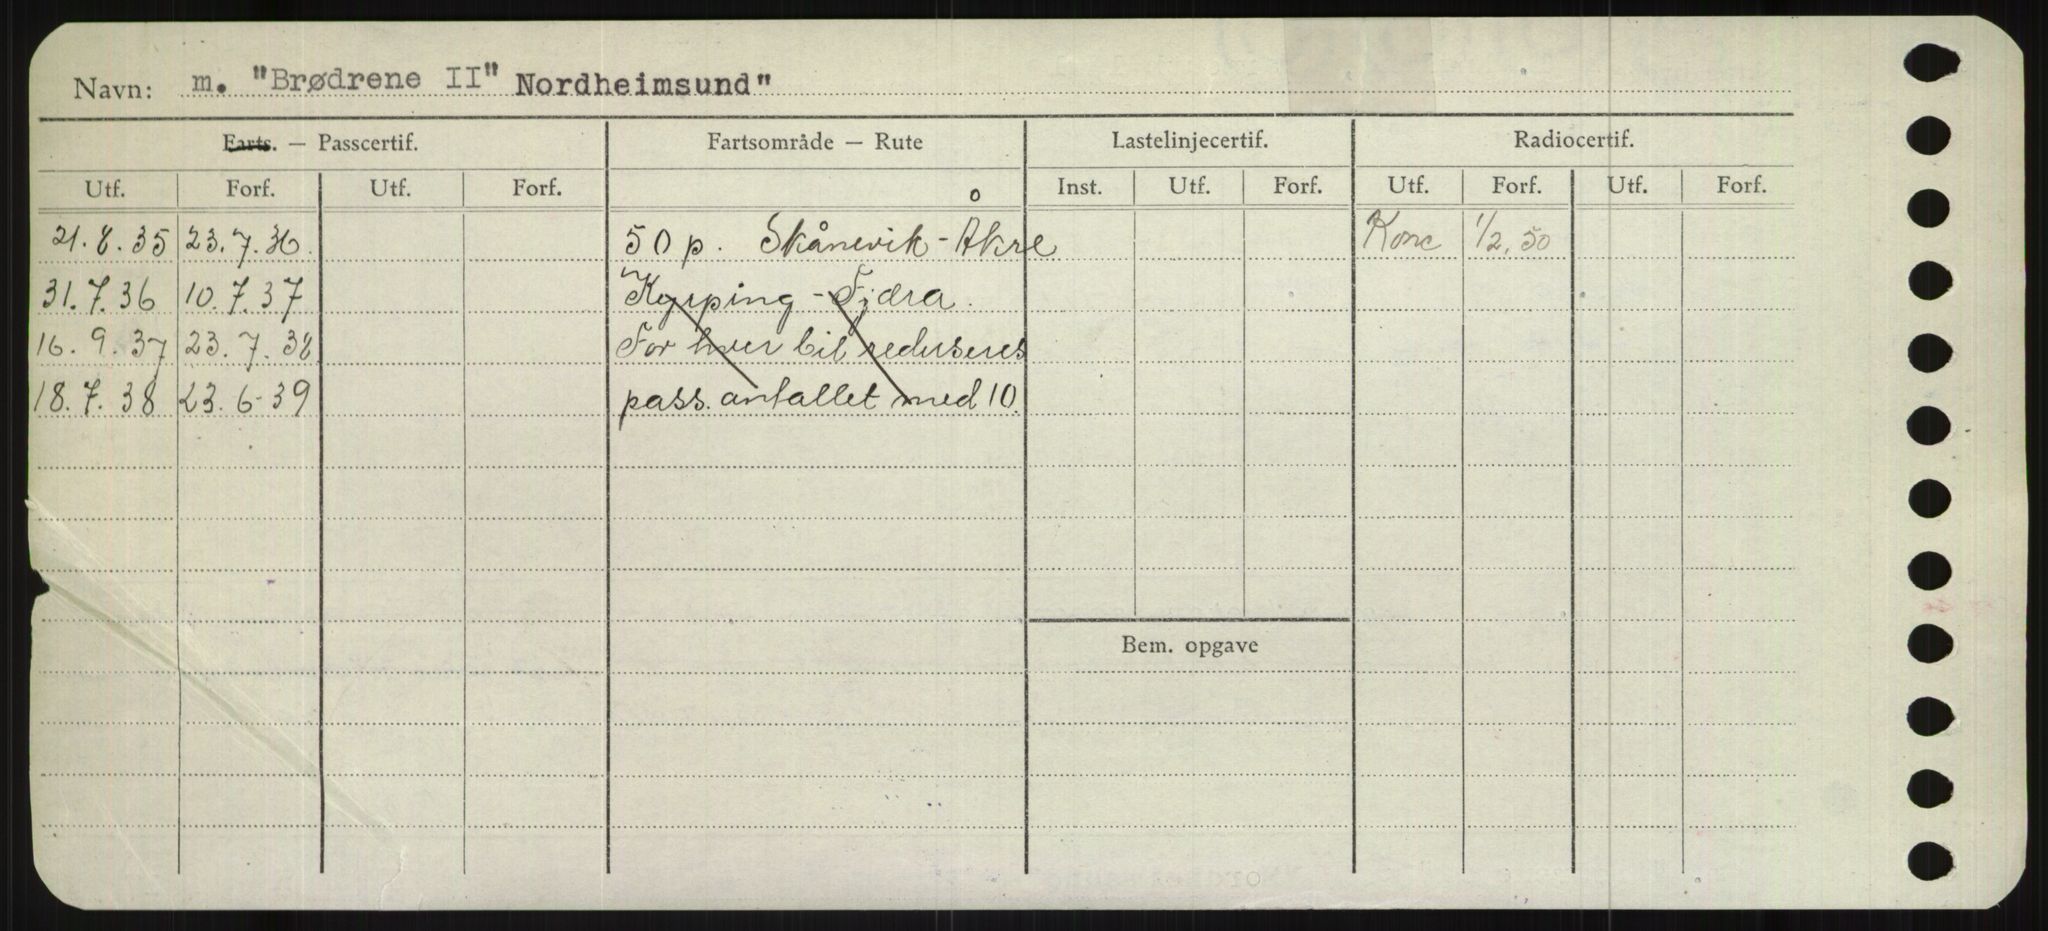 Navn: m. "Brødrene II" Nordheimsund"
Farts. — Passcertif. Fartsområde — Rute Lastelinjecertif. Radiocertif.
Utf. Forf. Utf. Forf. Inst. Utf. Forf. Utf. Forf. Utf. Forf.
21.8.35 23.7.36. 50 p. Skånevik - Åkre Konc 1/2,50
31.7.36 10.7.37 Kyrping - Fjæra.
16.9.37 23.7.38 For hver bil reduseres
18.7.38 23.6-39 pass. antallet med 10.
Bem. opgave